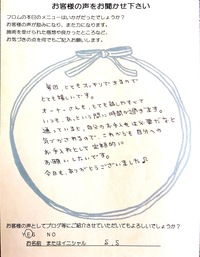 お客様の声をお聞かせ下さい
フロムの本日のメニューはいかがだったでしょうか？
お客様の声が励みになり、また力になります。
施術を受けられた感想や良かったところなど、
お気づきの点を何でもご記入お願いします。
毎回 とてもスッキリできるので
とても嬉しいです。
オーナーさんも、とても話しやすくて
いつも、あっという間に時間が過ぎます。
通っていると、自分のお手入れは必要だなと
気づかされるので、これからも自分への
お手入れとして定期的に
お願いしたいです。
今日も、ありがとうございました♫
お客様の声としてブログ等にご紹介させていただいてもよろしいでしょうか？
YES NO
お名前 またはイニシャル S.S